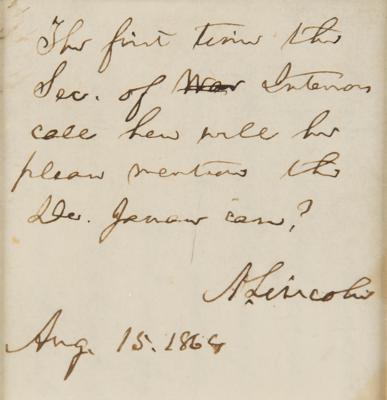 The first time the
Sec. of War Interior
call here will he
please mention the
De. Janow case?
A. Lincoln
Aug. 15. 1864